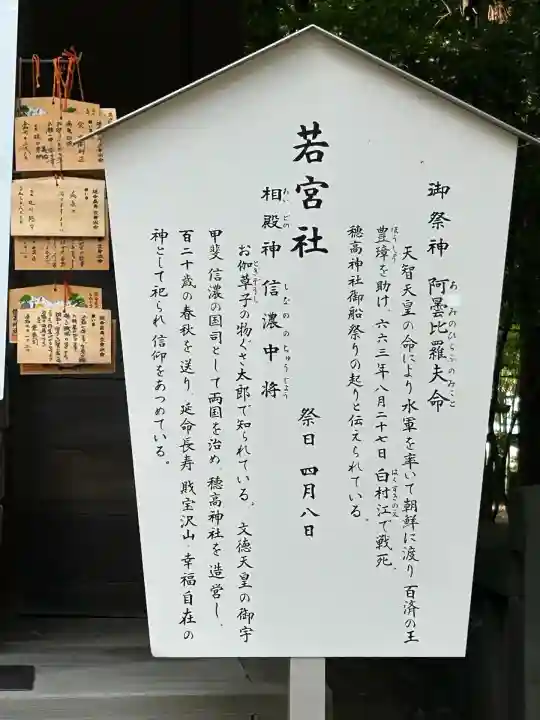 若宮社
祭日 四月八日
御祭神 阿曇比羅夫命
あづみのひらふのみこと
天智天皇の命により水軍を率いて朝鮮に渡り百済の王
豊璋を助け、六六三年八月二十七日白村江で戦死、
ほうしょう
はくすきのえ
穂高神社御船祭りの起りと伝えられている。
相殿神 信濃中将
あいどの
しなののちゅうじょう
お伽草子の物ぐさ太郎で知られている。文徳天皇の御宇
とぎぞうし
甲斐 信濃の国司として両国を治め、穂高神社を造営し、
百二十歳の春秋を送り、延命長寿 財宝沢山・幸福自在の
神として祀られ 信仰をあつめている。